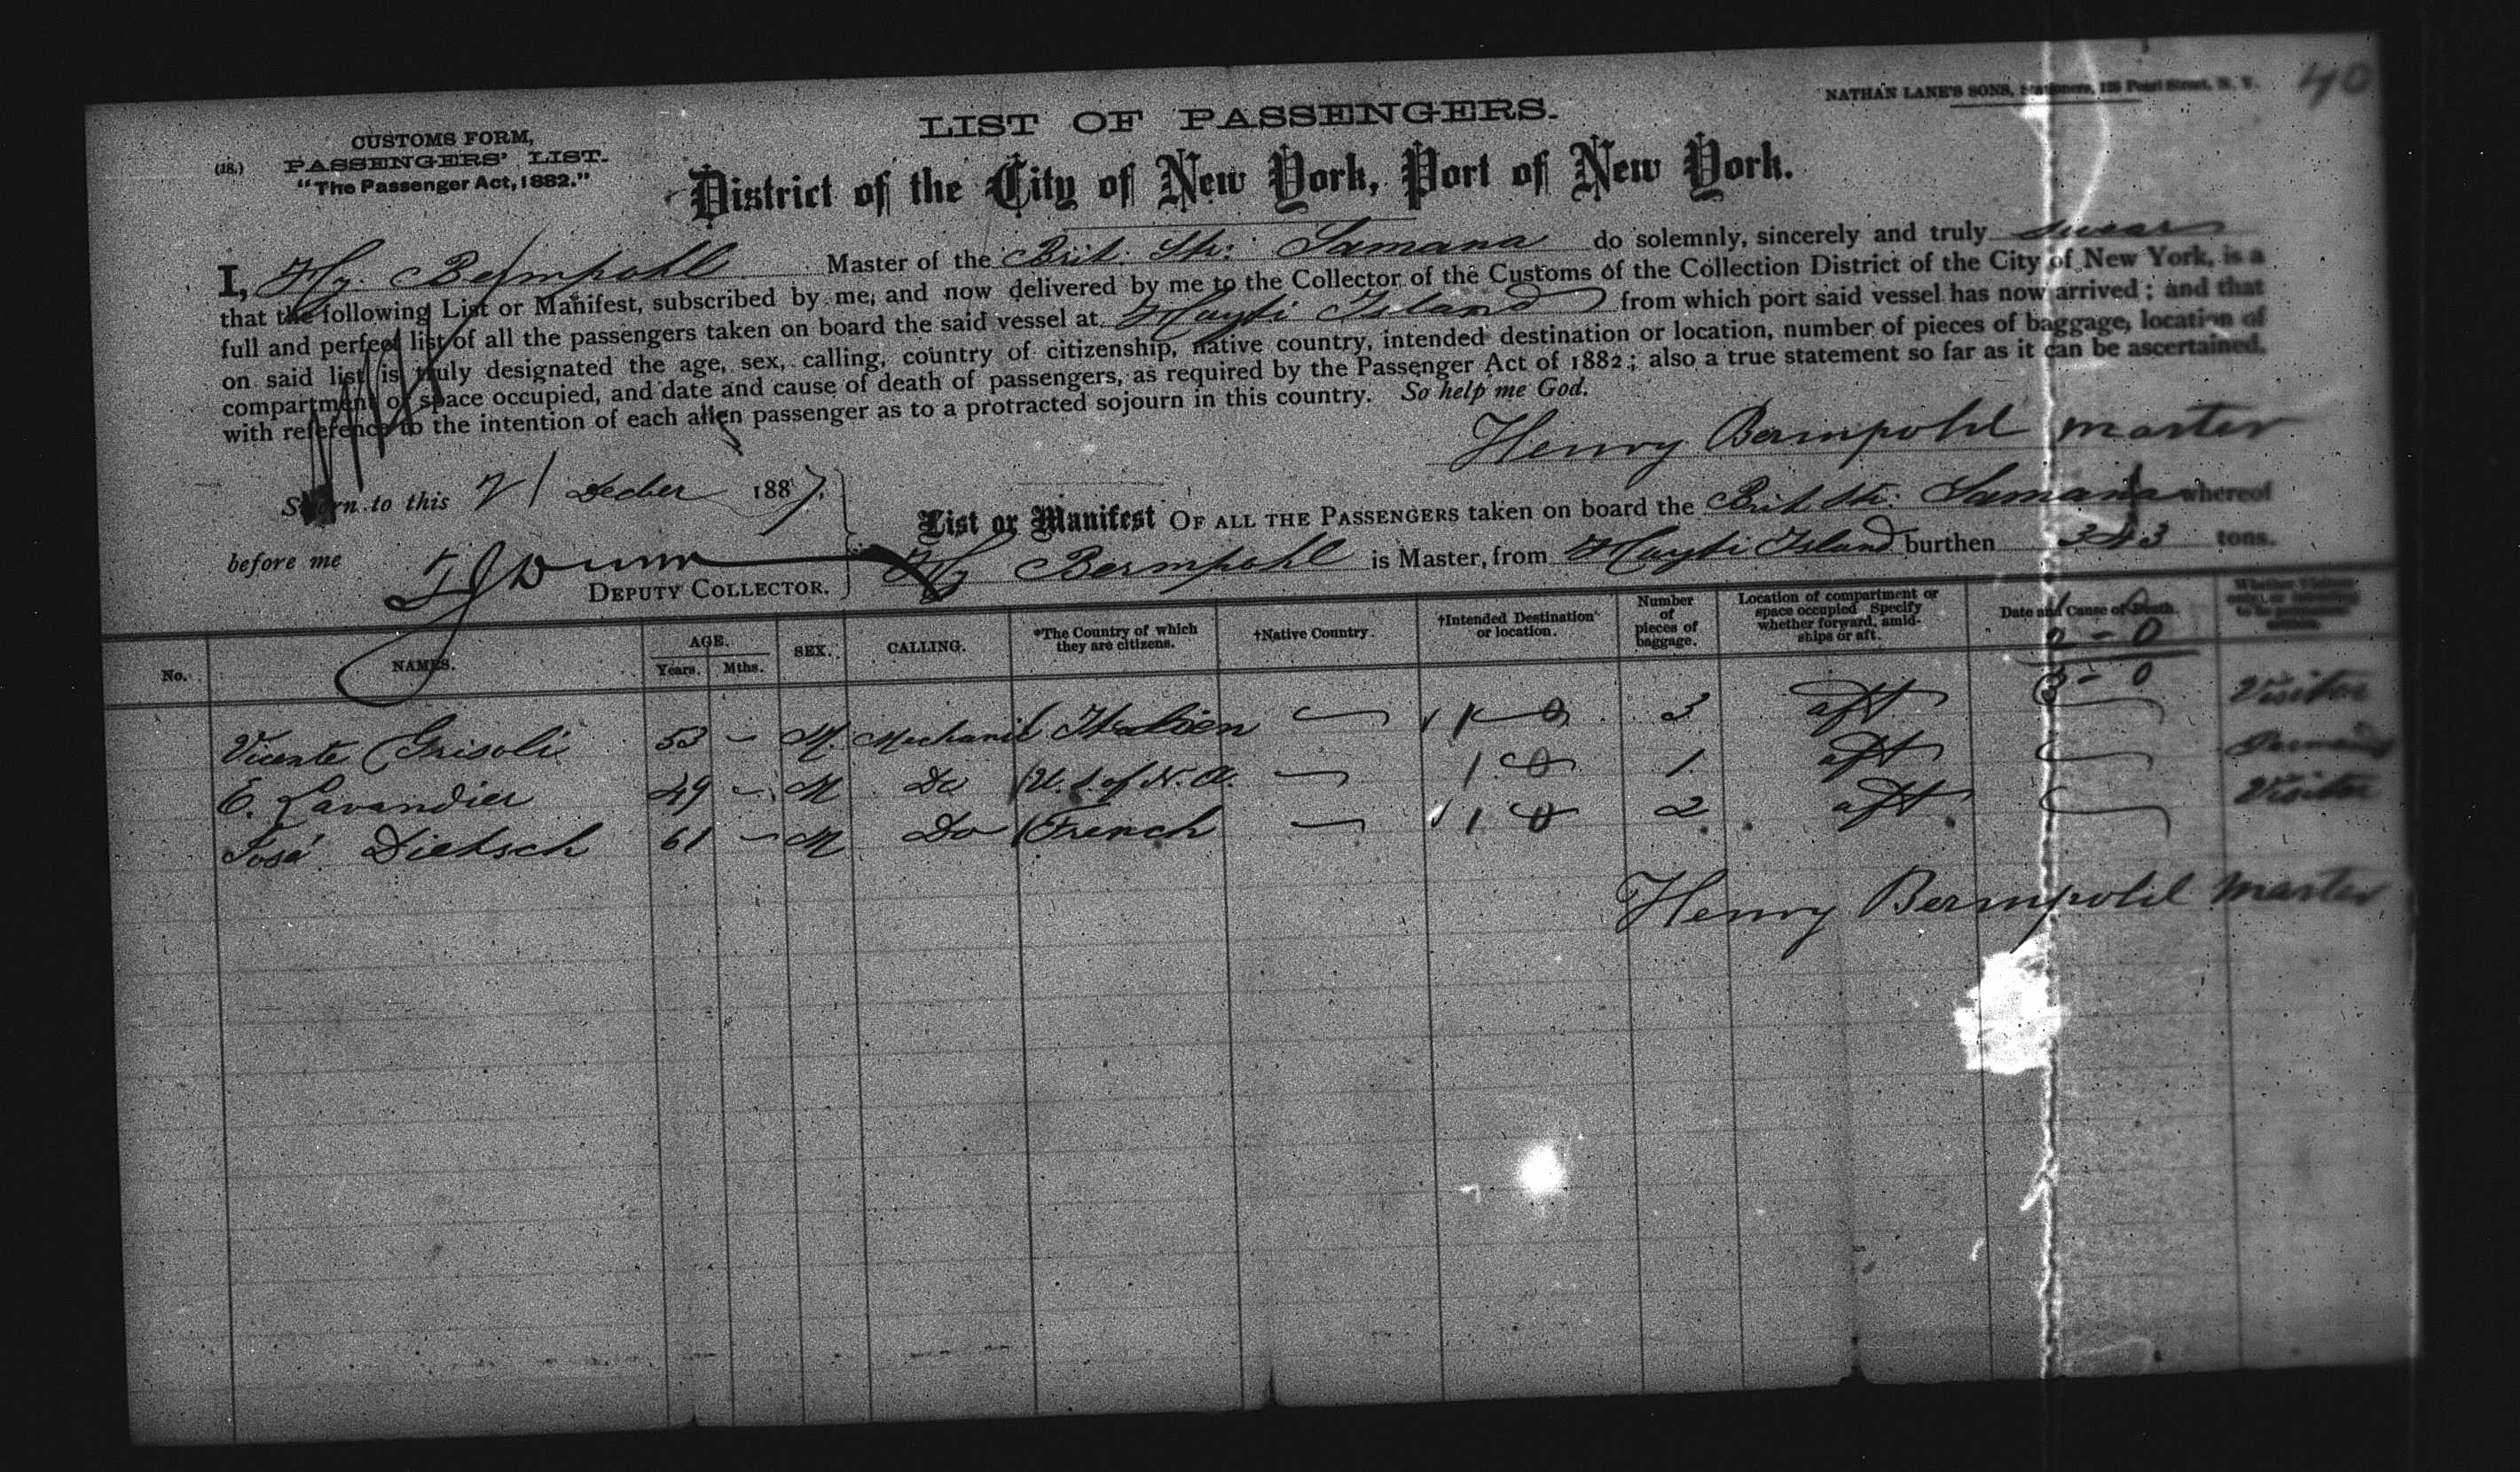 40
NATHAN LANE'S SONS, Stationers, 128 Pearl Street, N. Y.
(18.)
CUSTOMS FORM,
PASSENGERS' LIST.
"The Passenger Act, 1882."
LIST OF PASSENGERS.
District of the City of New York, Port of New York.
I, Hy. Bermpohl Master of the Brit. Str: Samana do solemnly, sincerely and truly swear
that the following List or Manifest, subscribed by me, and now delivered by me to the Collector of the Customs of the Collection District of the City of New York, is a
full and perfect list of all the passengers taken on board the said vessel at Hayti Island from which port said vessel has now arrived; and that
on said list is truly designated the age, sex, calling, country of citizenship, native country, intended destination or location, number of pieces of baggage, location of
compartment or space occupied, and date and cause of death of passengers, as required by the Passenger Act of 1882; also a true statement so far as it can be ascertained,
with reference to the intention of each alien passenger as to a protracted sojourn in this country. So help me God.
Henry Bermpohl master
Sworn to this 21 Decber 1887,
before me
DEPUTY COLLECTOR.
List or Manifest OF ALL THE PASSENGERS taken on board the Brit Str: Samana whereof
Hy Bermpohl is Master, from Hayti Island burthen 343 tons.
No. NAMES. AGE. Years. Mths. SEX. CALLING. *The Country of which they are citizens. †Native Country. †Intended Destination or location. Number of pieces of baggage. Location of compartment or space occupied Specify whether forward, amidships or aft. Date and Cause of Death.
2 - 0
3 - 0
Vicente Grisoli 53 — M. Mechanic Italien — 1 0 3 aft Visitor
E. Lavandier 49 — M Do U. S. of N. A. — 1 0 1 aft
José Dietsch 61 — M Do French — 1 0 2 aft Visitor
Henry Bermpohl master